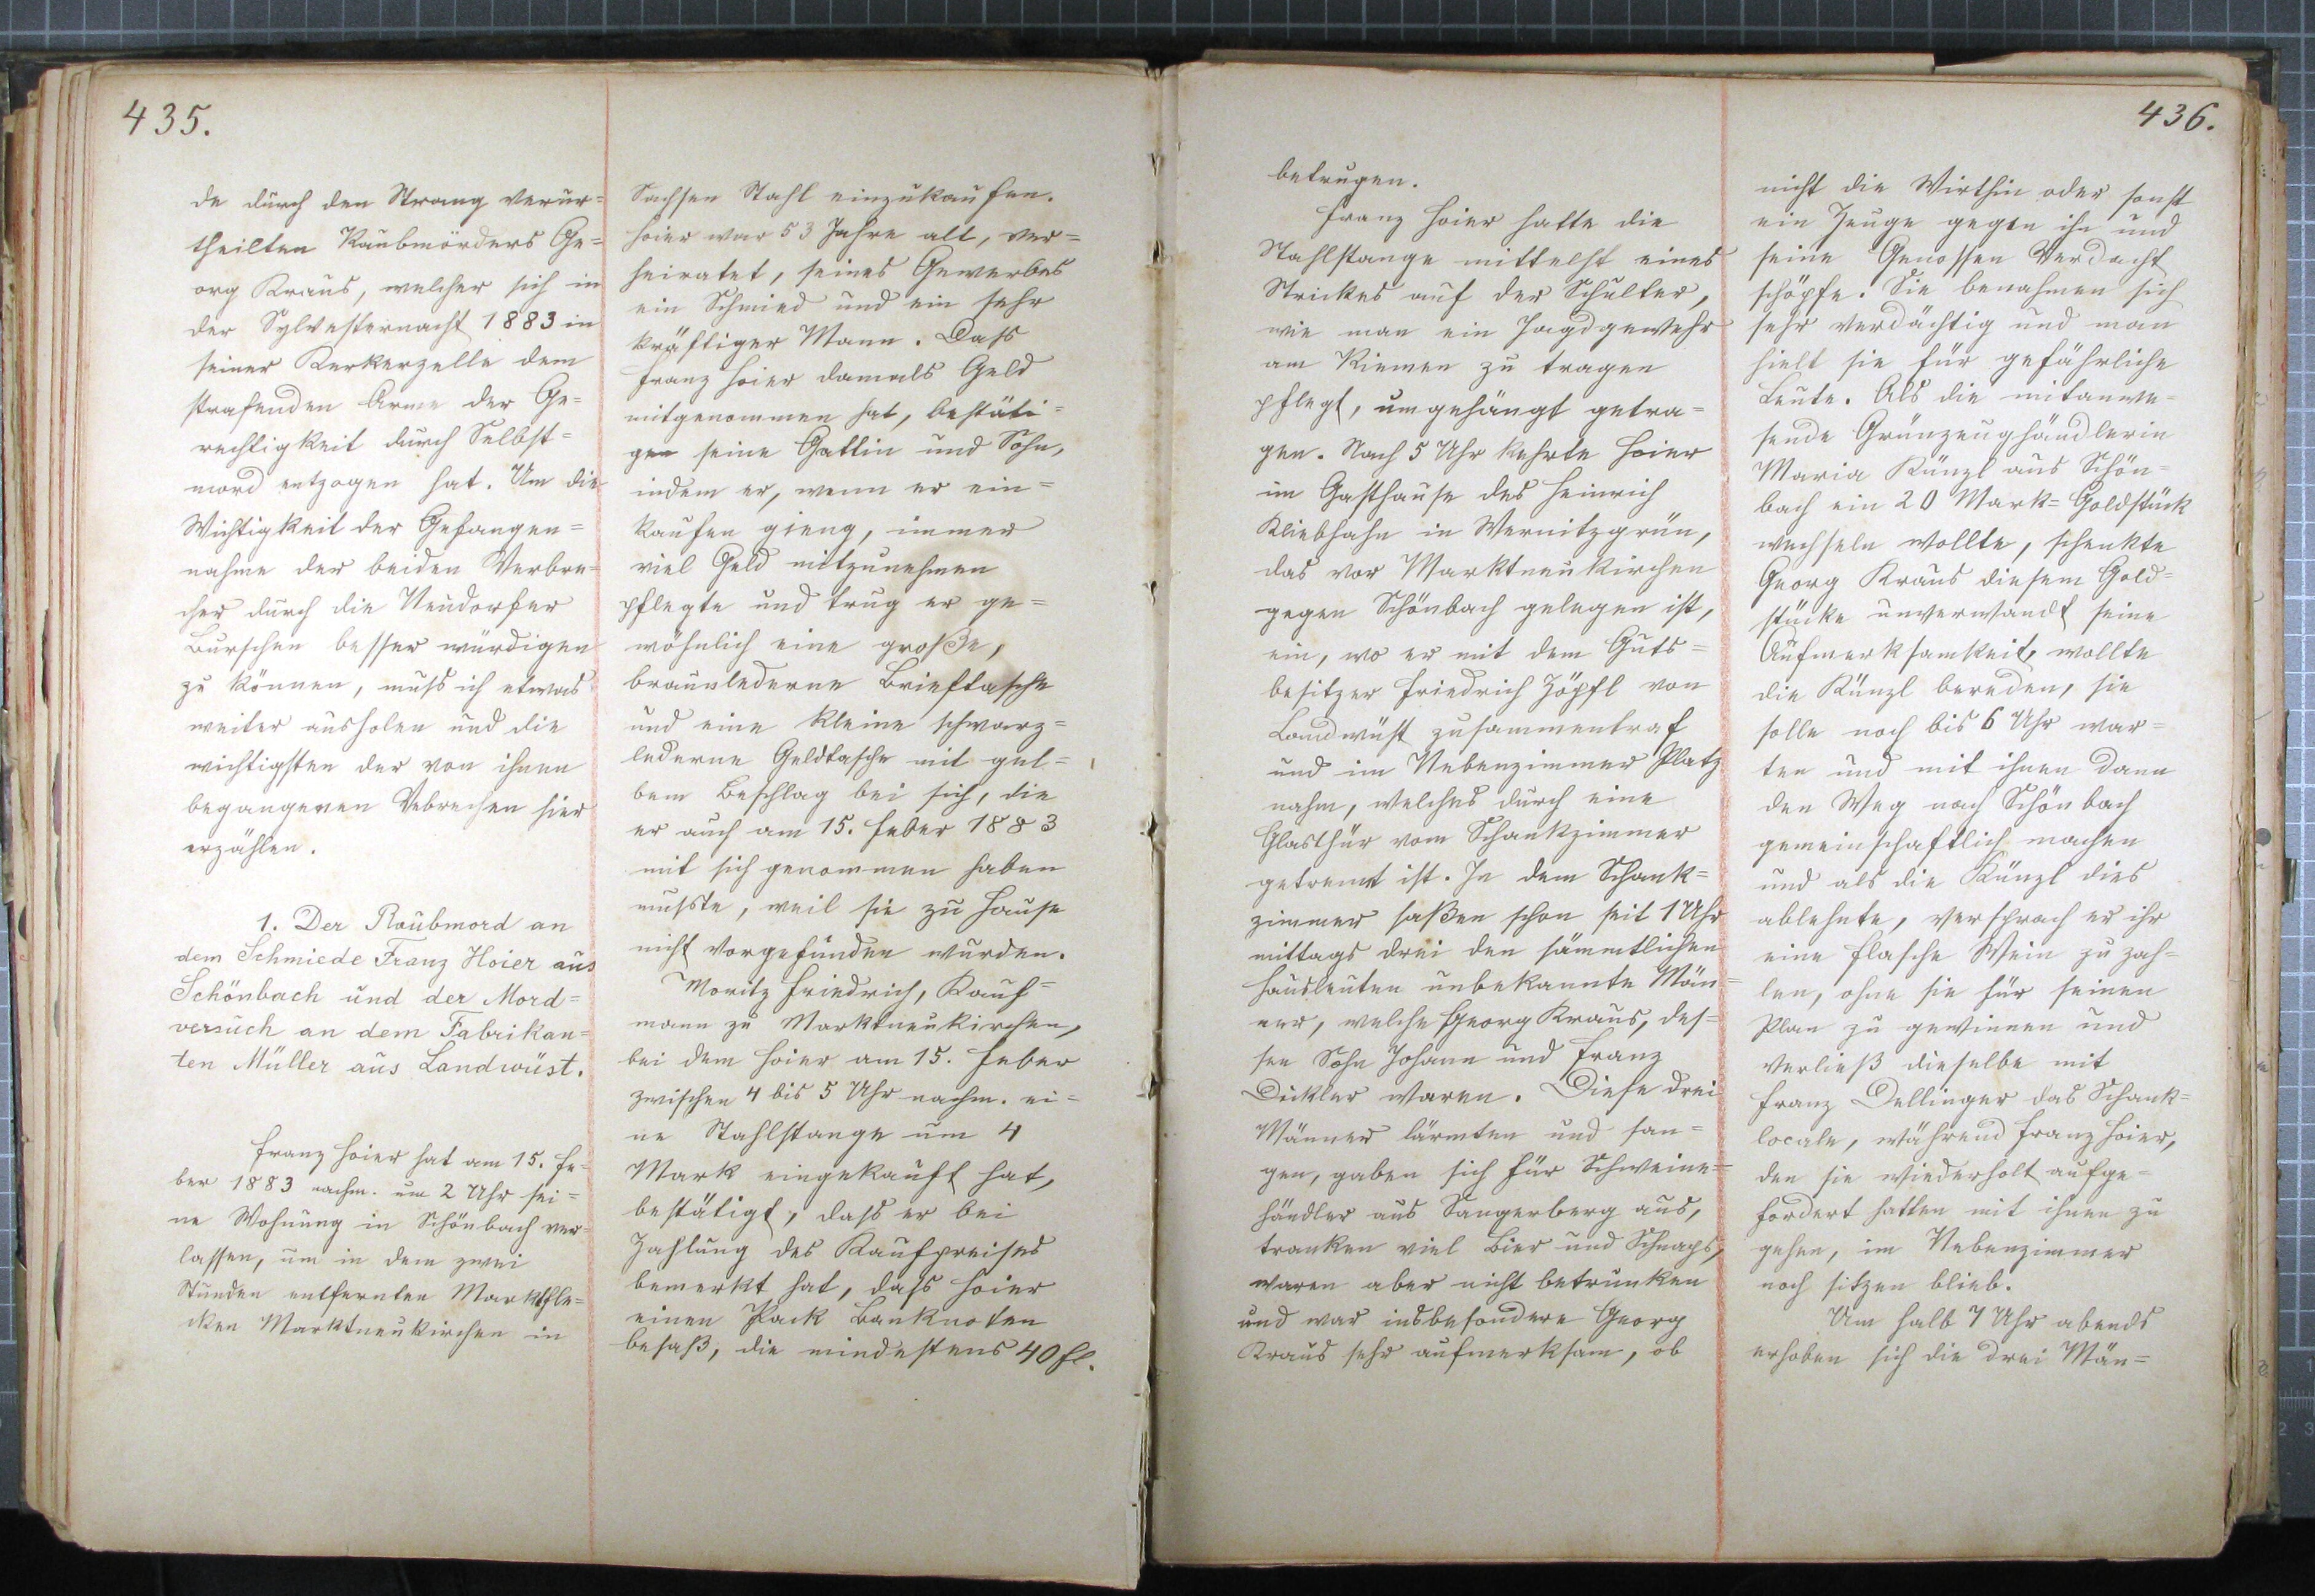 435.
de durch den Strang verur=
theilten Raubmörders Ge=
org Kraus, welcher sich in
der Sylvesternacht 1883 in
seiner Kerkerzelle dem
strafenden Arme der Ge=
rechtigkeit durch Selbst=
mord entzogen hat. Um die
Wichtigkeit der Gefangen=
nahme der beiden Verbre=
cher durch die Neudorfer
Burschen besser würdigen
zu können, muß ich etwas
weiter ausholen und die
wichtigsten der von ihnen
begangenen Vebrechen hier
erzählen.
1. Der Raubmord an
dem Schmiede Franz Hoier aus
Schönbach und der Mord=
versuch an dem Fabrikan=
ten Müller aus Landwüst.
Franz Hoier hat am 15. Fe=
ber 1883 nachm. um 2 Uhr sei=
ne Wohnung in Schönbach ver=
lassen, um in dem zwei
Stunden entfernten Marktfle=
cken Marktneukirchen in
Sachsen Stahl einzukaufen.
Hoier war 53 Jahre alt, ver=
heiratet, seines Gewerbes
ein Schmied und ein sehr
kräftiger Mann. Daß
Franz Hoier damals Geld
mitgenommen hat, bestäti=
gen seine Gattin und Sohn,
indem er, wenn er ein=
kaufen gieng, immer
viel Geld mitzunehmen
pflegte und trug er ge=
wöhnlich eine große,
braunlederne Brieftasche
und eine kleine schwarz=
lederne Geldtasche mit gel=
bem Beschlag bei sich, die
er auch am 15. Feber 1883
mit sich genommen haben
mußte, weil sie zu Hause
nicht vorgefunden wurden.
Moritz Friedrich, Kauf=
mann zu Marktneukirchen,
bei dem Hoier am 15. Feber
zwischen 4 bis 5 Uhr nachm. ei=
ne Stahlstange um 4
Mark eingekauft hat,
bestätigt, daß er bei
Zahlung des Kaufpreises
bemerkt hat, daß Hoier
einen Pack Banknoten
besaß, die mindestens 40 fl.
436.
betrugen.
Franz Hoier hatte die
Stahlstange mittelst eines
Strickes auf der Schulter,
wie man ein Jagdgewehr
am Riemen zu tragen
pflegt, umgehängt getra=
gen. Nach 5 Uhr kehrte Hoier
im Gasthause des Heinrich
Kliebhahn in Wernitzgrün,
das vor Marktneukirchen
gegen Schönbach gelegen ist,
ein, wo er mit dem Guts=
besitzer Friedrich Zöpfl von
Landwüst zusammentraf
und im Nebenzimmer Platz
nahm, welches durch eine
Glasthür vom Schankzimmer
getrennt ist. In dem Schank=
zimmer saßen schon seit 1 Uhr
mittags drei den sämmtlichen
Hausleuten unbekannte Män=
ner, welche Georg Kraus, des=
sen Sohn Johann und Franz
Dickler waren. Diese drei
Männer lärmten und san=
gen, gaben sich für Schweine=
händler aus Sangerberg aus,
tranken viel Bier und Schnaps,
waren aber nicht betrunken
und war insbesondere Georg
Kraus sehr aufmerksam, ob
nicht die Wirthin oder sonst
ein Zeuge gegen ihn und
seine Genossen Verdacht
schöpfe. Sie benahmen sich
sehr verdächtig und man
hielt sie für gefährliche
Leute. Als die mitanwe=
sende Grünzeughändlerin
Maria Künzl aus Schön=
bach ein 20 Mark=Goldstück
wechseln wollte, schenkte
Georg Kraus diesem Gold=
stücke unverwandt seine
Aufmerksamkeit, wollte
die Künzl bereden, sie
solle noch bis 6 Uhr war=
ten und mit ihnen dann
den Weg nach Schönbach
gemeinschaftlich machen
und als die Künzl dies
ablehnte, versprach er ihr
eine Flasche Wein zu zah=
len, ohne sie für seinen
Plan zu gewinnen und
verließ dieselbe mit
Franz Dellinger das Schank=
locale, während Franz Hoier,
den sie wiederholt aufge=
fordert hatten mit ihnen zu
gehen, im Nebenzimmer
noch sitzen blieb.
Um halb 7 Uhr abends
erhoben sich die drei Män=